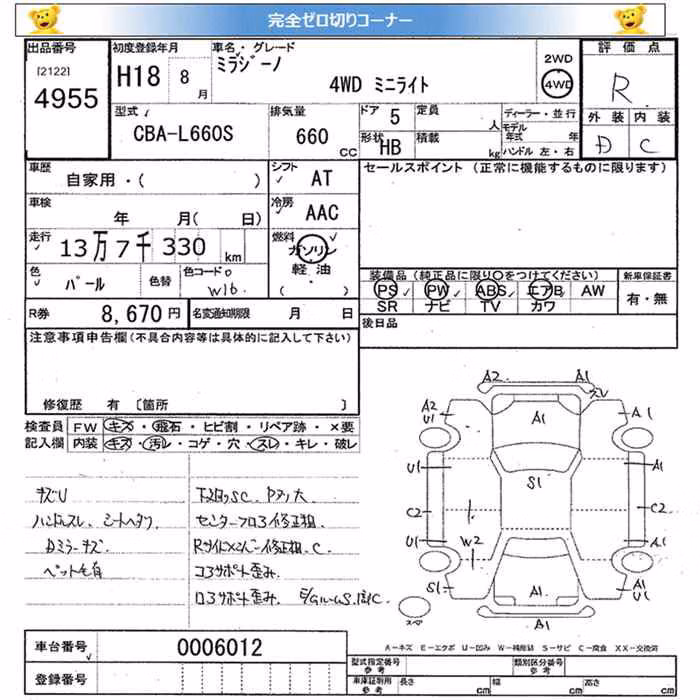 完全ゼロ切りコーナー
出品番号
[2122]
4955
初度登録年月
H18 8月
車名・グレード
ミラジーノ
4WD ミニライト
2WD
4WD
評価点
R
外装 内装
D C
型式
CBA-L660S
排気量
660 CC
ドア 5
定員 人
形状 HB
積載 kg
ディーラー・並行
モデル年式 年
ハンドル 左・右
車歴
自家用・( )
シフト AT
セールスポイント (正常に機能するものに限ります)
車検
年 月( 日)
冷房 AAC
走行
13万7千330 km
燃料
ガソリン
軽油
( )
色
パール
色替
色コード
W16
装備品 (純正品に限り〇をつけてください)
PS PW ABS エアB AW
SR ナビ TV カワ
新車保証書
有・無
R券
8,670円
名変通知期限 月 日
後日品
注意事項申告欄(不具合内容等は具体的に記入して下さい)
修復歴 有 〔箇所 〕
検査員記入欄
FW キズ・飛石・ヒビ割・リペア跡・×要
内装 キズ・汚レ・コゲ・穴・スレ・キレ・破レ
キズU
ハンドルスレ、シートヘタリ
Dミラーキズ
ペット毛有
センターフロア修正粗
コアサポート歪み
A2 A1
A2 U1 A1 A1
U1 S1 A1
C2 C2
U1 W2 A1
S1 A1 A1 U1
A1
スペア
A-キズ E-エクボ U-凹み W-補修跡 S-サビ C-腐食 XX-交換済
車台番号 0006012
登録番号
型式指定番号 参考
類別区分番号 参考
車庫証明用 参考
長さ cm 幅 cm 高さ cm